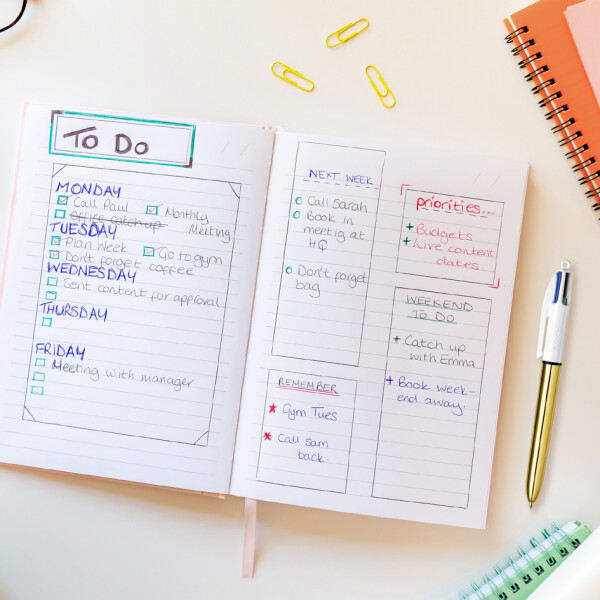 To Do
MONDAY
Call Paul
Monthly
Meeting
Office catch up
TUESDAY
Plan Week
Go to gym
Don't forget coffee
WEDNESDAY
Sent content for approval
THURSDAY
FRIDAY
Meeting with manager
NEXT WEEK
Call Sarah
Book in
meetig at
HQ
Don't forget
bag
REMEMBER
Gym Tues
Call sam
back.
priorities...
Budgets
Live content
dates
WEEKEND
TO DO
Catch up
with Emma
Book week-
end away.